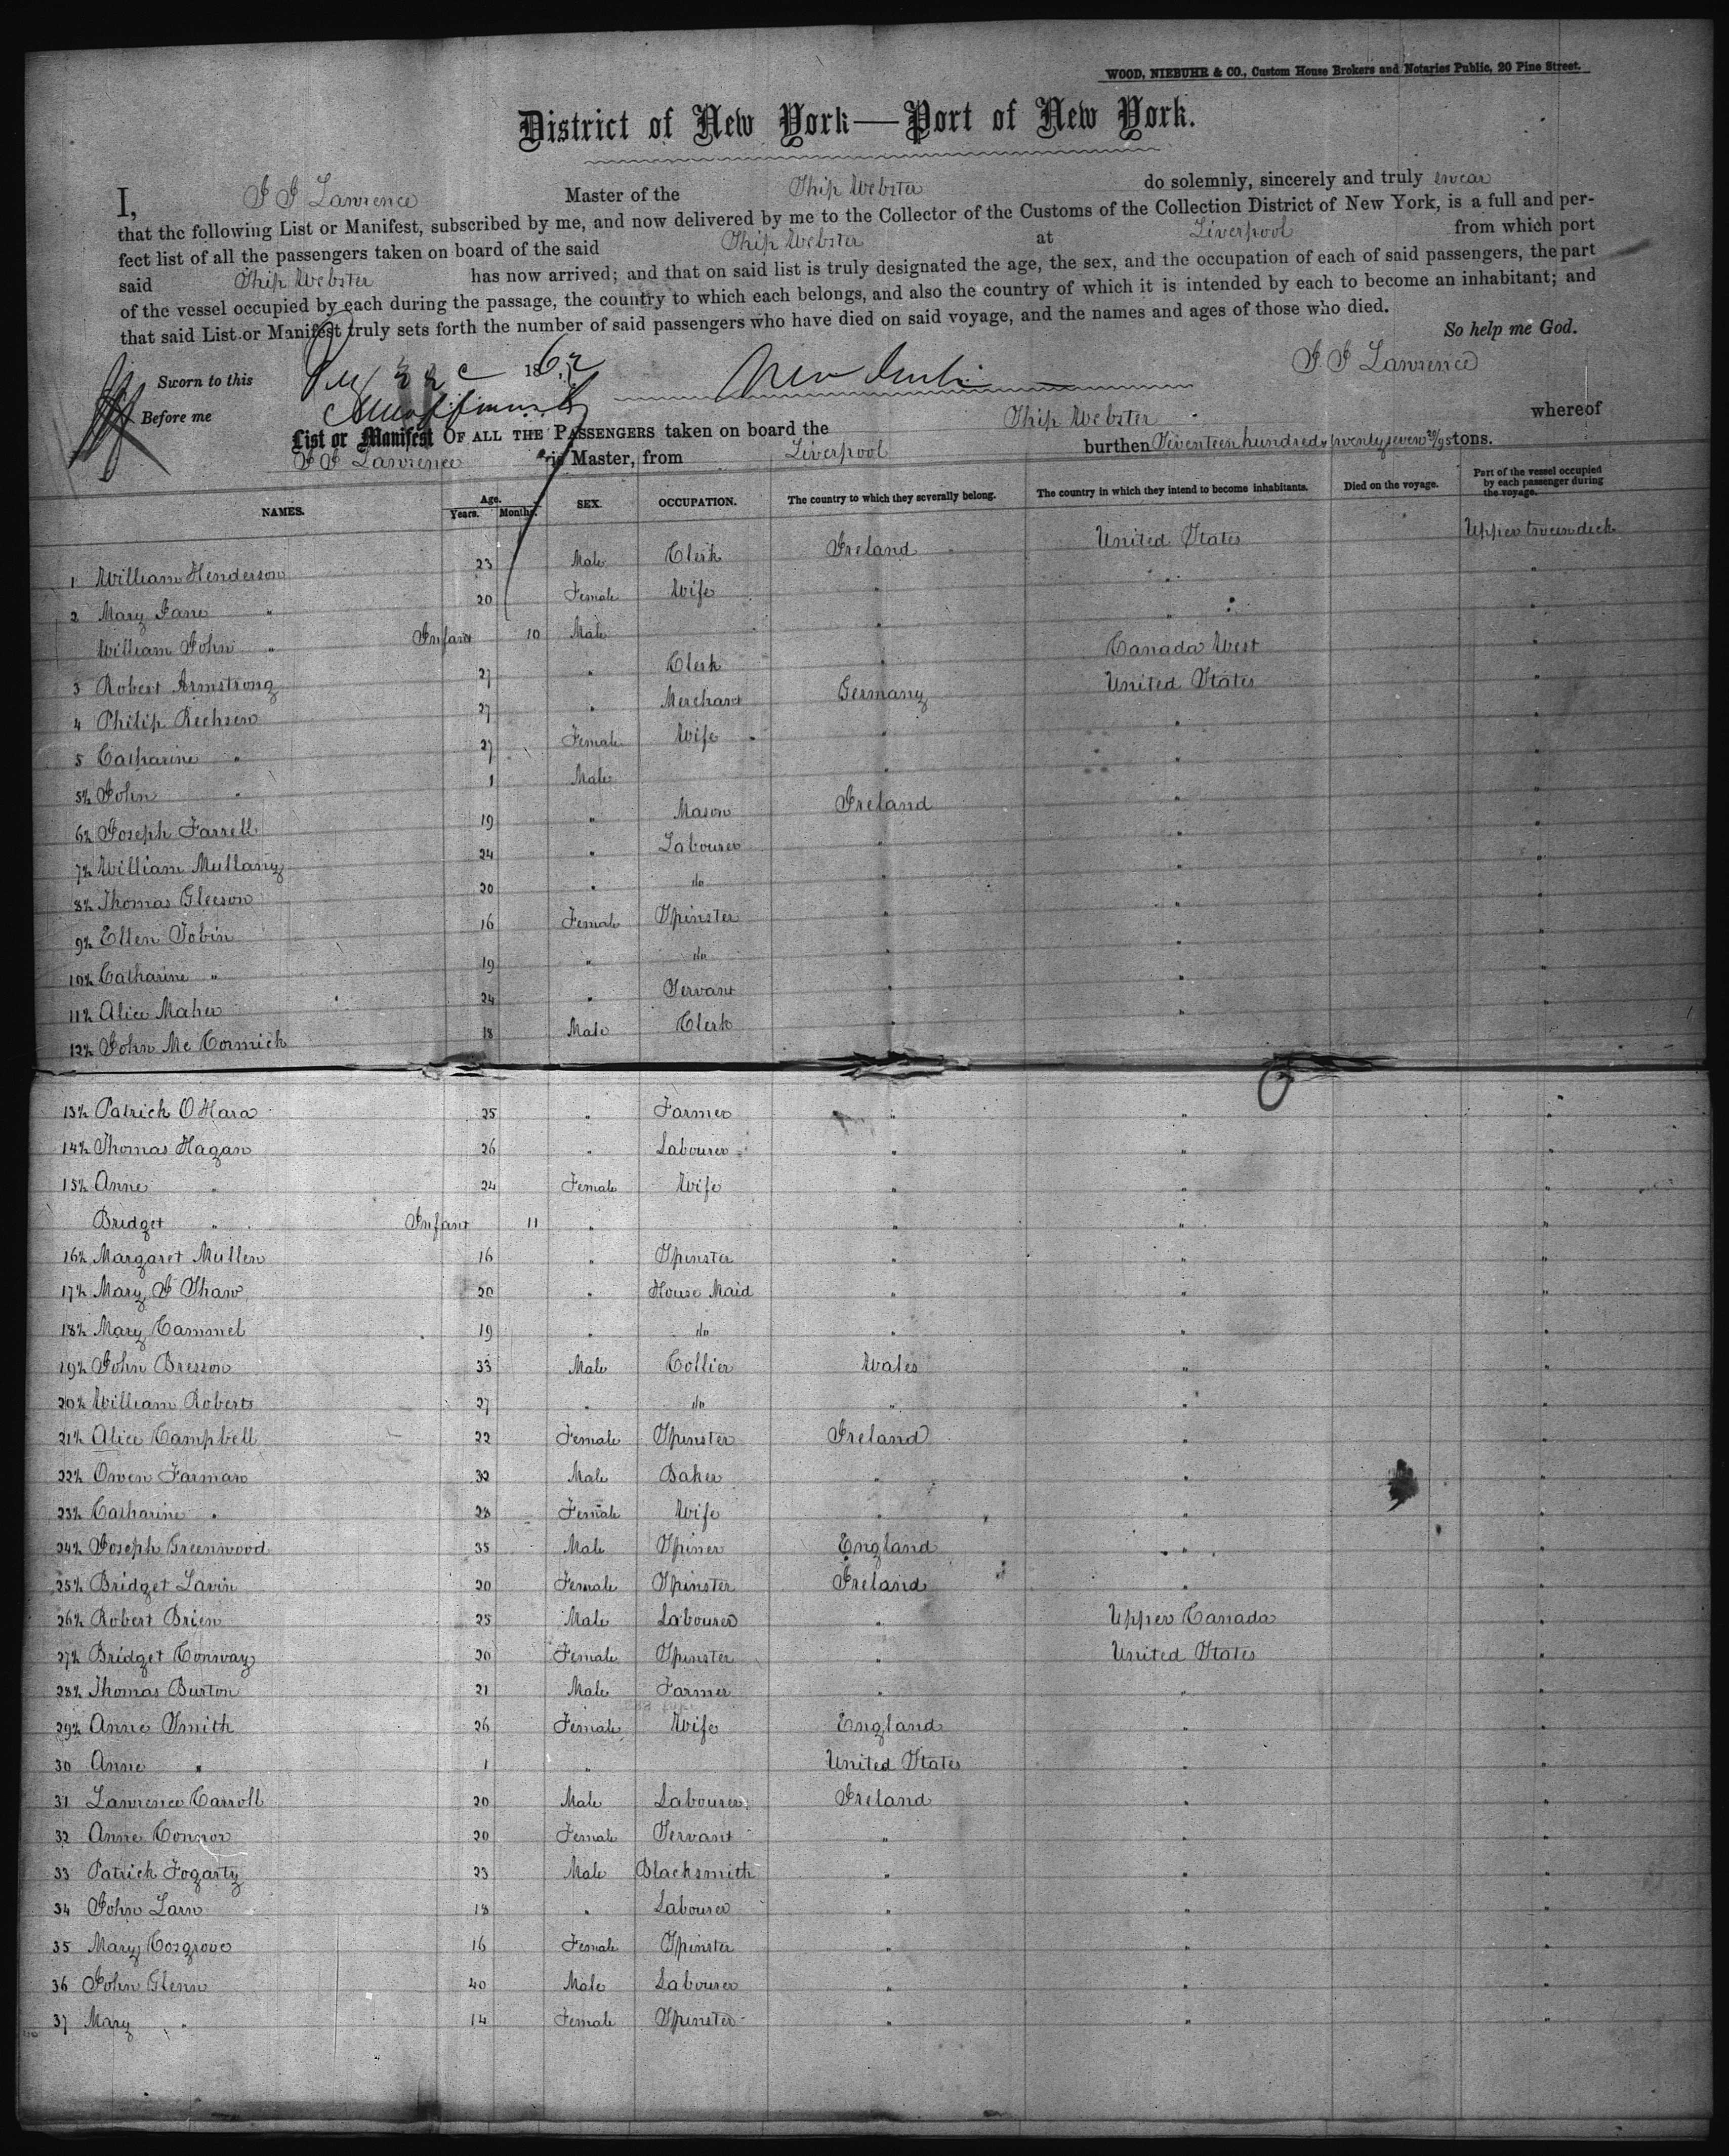 WOOD, NIEBUHR & CO., Custom House Brokers and Notaries Public, 20 Pine Street.
District of New York—Port of New York.
I, J J Lawrence Master of the Ship Webster do solemnly, sincerely and truly swear
that the following List or Manifest, subscribed by me, and now delivered by me to the Collector of the Customs of the Collection District of New York, is a full and per-
fect list of all the passengers taken on board of the said Ship Webster at Liverpool from which port
said Ship Webster has now arrived; and that on said list is truly designated the age, the sex, and the occupation of each of said passengers, the part
of the vessel occupied by each during the passage, the country to which each belongs, and also the country of which it is intended by each to become an inhabitant; and
that said List or Manifest truly sets forth the number of said passengers who have died on said voyage, and the names and ages of those who died.
So help me God.
Sworn to this 1862 J J Lawrence
Before me
List or Manifest OF ALL THE PASSENGERS taken on board the Ship Webster whereof
J J Lawrence is Master, from Liverpool burthen Seventeen hundred & twenty seven 20/95 tons.
NAMES. Age. Years. Months. SEX. OCCUPATION. The country to which they severally belong. The country in which they intend to become inhabitants. Died on the voyage. Part of the vessel occupied by each passenger during the voyage.
1 William Henderson 23 Male Clerk Ireland United States Upper tween deck
2 Mary Jane " 20 Female Wife " " "
William John " Infant 10 Male " " "
3 Robert Armstrong 27 " Clerk " Canada West "
4 Philip Rechsen 27 " Merchant Germany United States "
5 Catharine " 27 Female Wife " " "
5½ John " 1 Male " " "
6½ Joseph Farrell 19 " Mason Ireland " "
7½ William Mullany 24 " Labourer " " "
8½ Thomas Gleeson 20 " do " " "
9½ Ellen Tobin 16 Female Spinster " " "
10½ Catharine " 19 " do " " "
11½ Alice Maher 24 " Servant " " "
12½ John Mc Cormick 18 Male Clerk " " "
13½ Patrick O Hara 25 " Farmer " " "
14½ Thomas Hagan 26 " Labourer " " "
15½ Anne " 24 Female Wife " " "
Bridget " Infant 11 " " " "
16½ Margaret Mullen 16 " Spinster " " "
17½ Mary J Shaw 20 " House Maid " " "
18½ Mary Cammel 19 " do " " "
19½ John Bresson 33 Male Collier Wales " "
20½ William Roberts 27 " do " " "
21½ Alice Campbell 22 Female Spinster Ireland " "
22½ Owen Farman 32 Male Baker " " "
23½ Catharine " 28 Female Wife " " "
24½ Joseph Greenwood 35 Male Spiner England " "
25½ Bridget Lavin 20 Female Spinster Ireland " "
26½ Robert Brien 25 Male Labourer " Upper Canada "
27½ Bridget Conway 20 Female Spinster " United States "
28½ Thomas Burton 21 Male Farmer " " "
29½ Anne Smith 26 Female Wife England " "
30 Anne " 1 " United States " "
31 Lawrence Carroll 20 Male Labourer Ireland " "
32 Anne Connor 20 Female Servant " " "
33 Patrick Fogarty 23 Male Blacksmith " " "
34 John Larn 18 " Labourer " " "
35 Mary Cosgrove 16 Female Spinster " " "
36 John Glenn 40 Male Labourer " " "
37 Mary " 14 Female Spinster " " "